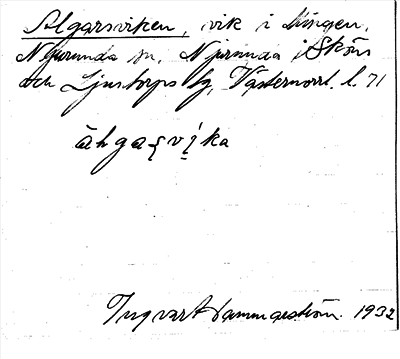 Algarsviken, vik i Lången,
Njurunda sn, Njurunda, Sköns
och Ljustorps tg, Västernorrl. l. 71
àhgaʂvíka
Ingvar Hammarström. 1932